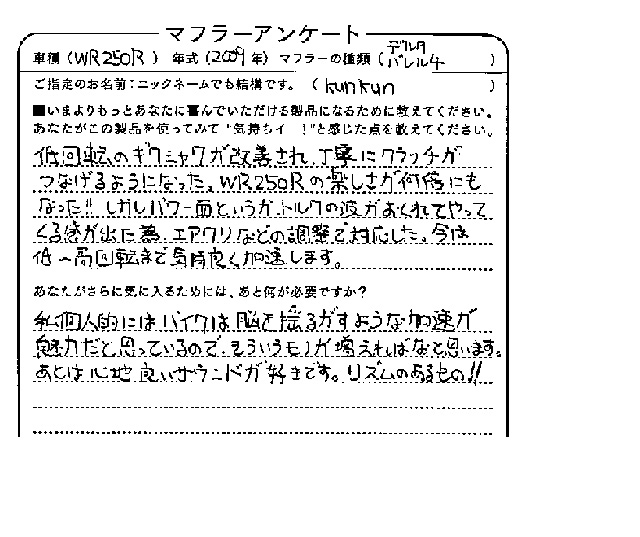 マフラーアンケート
車種（WR250R） 年式（2009年）マフラーの種類（デルタバレル4）
ご指定のお名前：ニックネームでも結構です。（kunkun）
■いまよりもっとあなたに喜んでいただける製品になるために教えてください。
あなたがこの製品を使ってみて“気持ちイイ！”と感じた点を教えてください。
低回転のギクシャクが改善され、丁寧にクラッチが
つなげるようになった。WR250Rの楽しさが何倍にも
なった!! しかしパワー面というかトルクの波がおくれてやって
くる感が出た為、エアクリなどの調整で対応した。今は
低～高回転まで気持良く加速します。
あなたがさらに気に入るためには、あと何が必要ですか？
私個人的にはバイクは脳を揺るがすような加速が
魅力だと思っているので、そういうモノが増えればなと思います。
あとは心地良いサウンドが好きです。リズムのあるもの!!